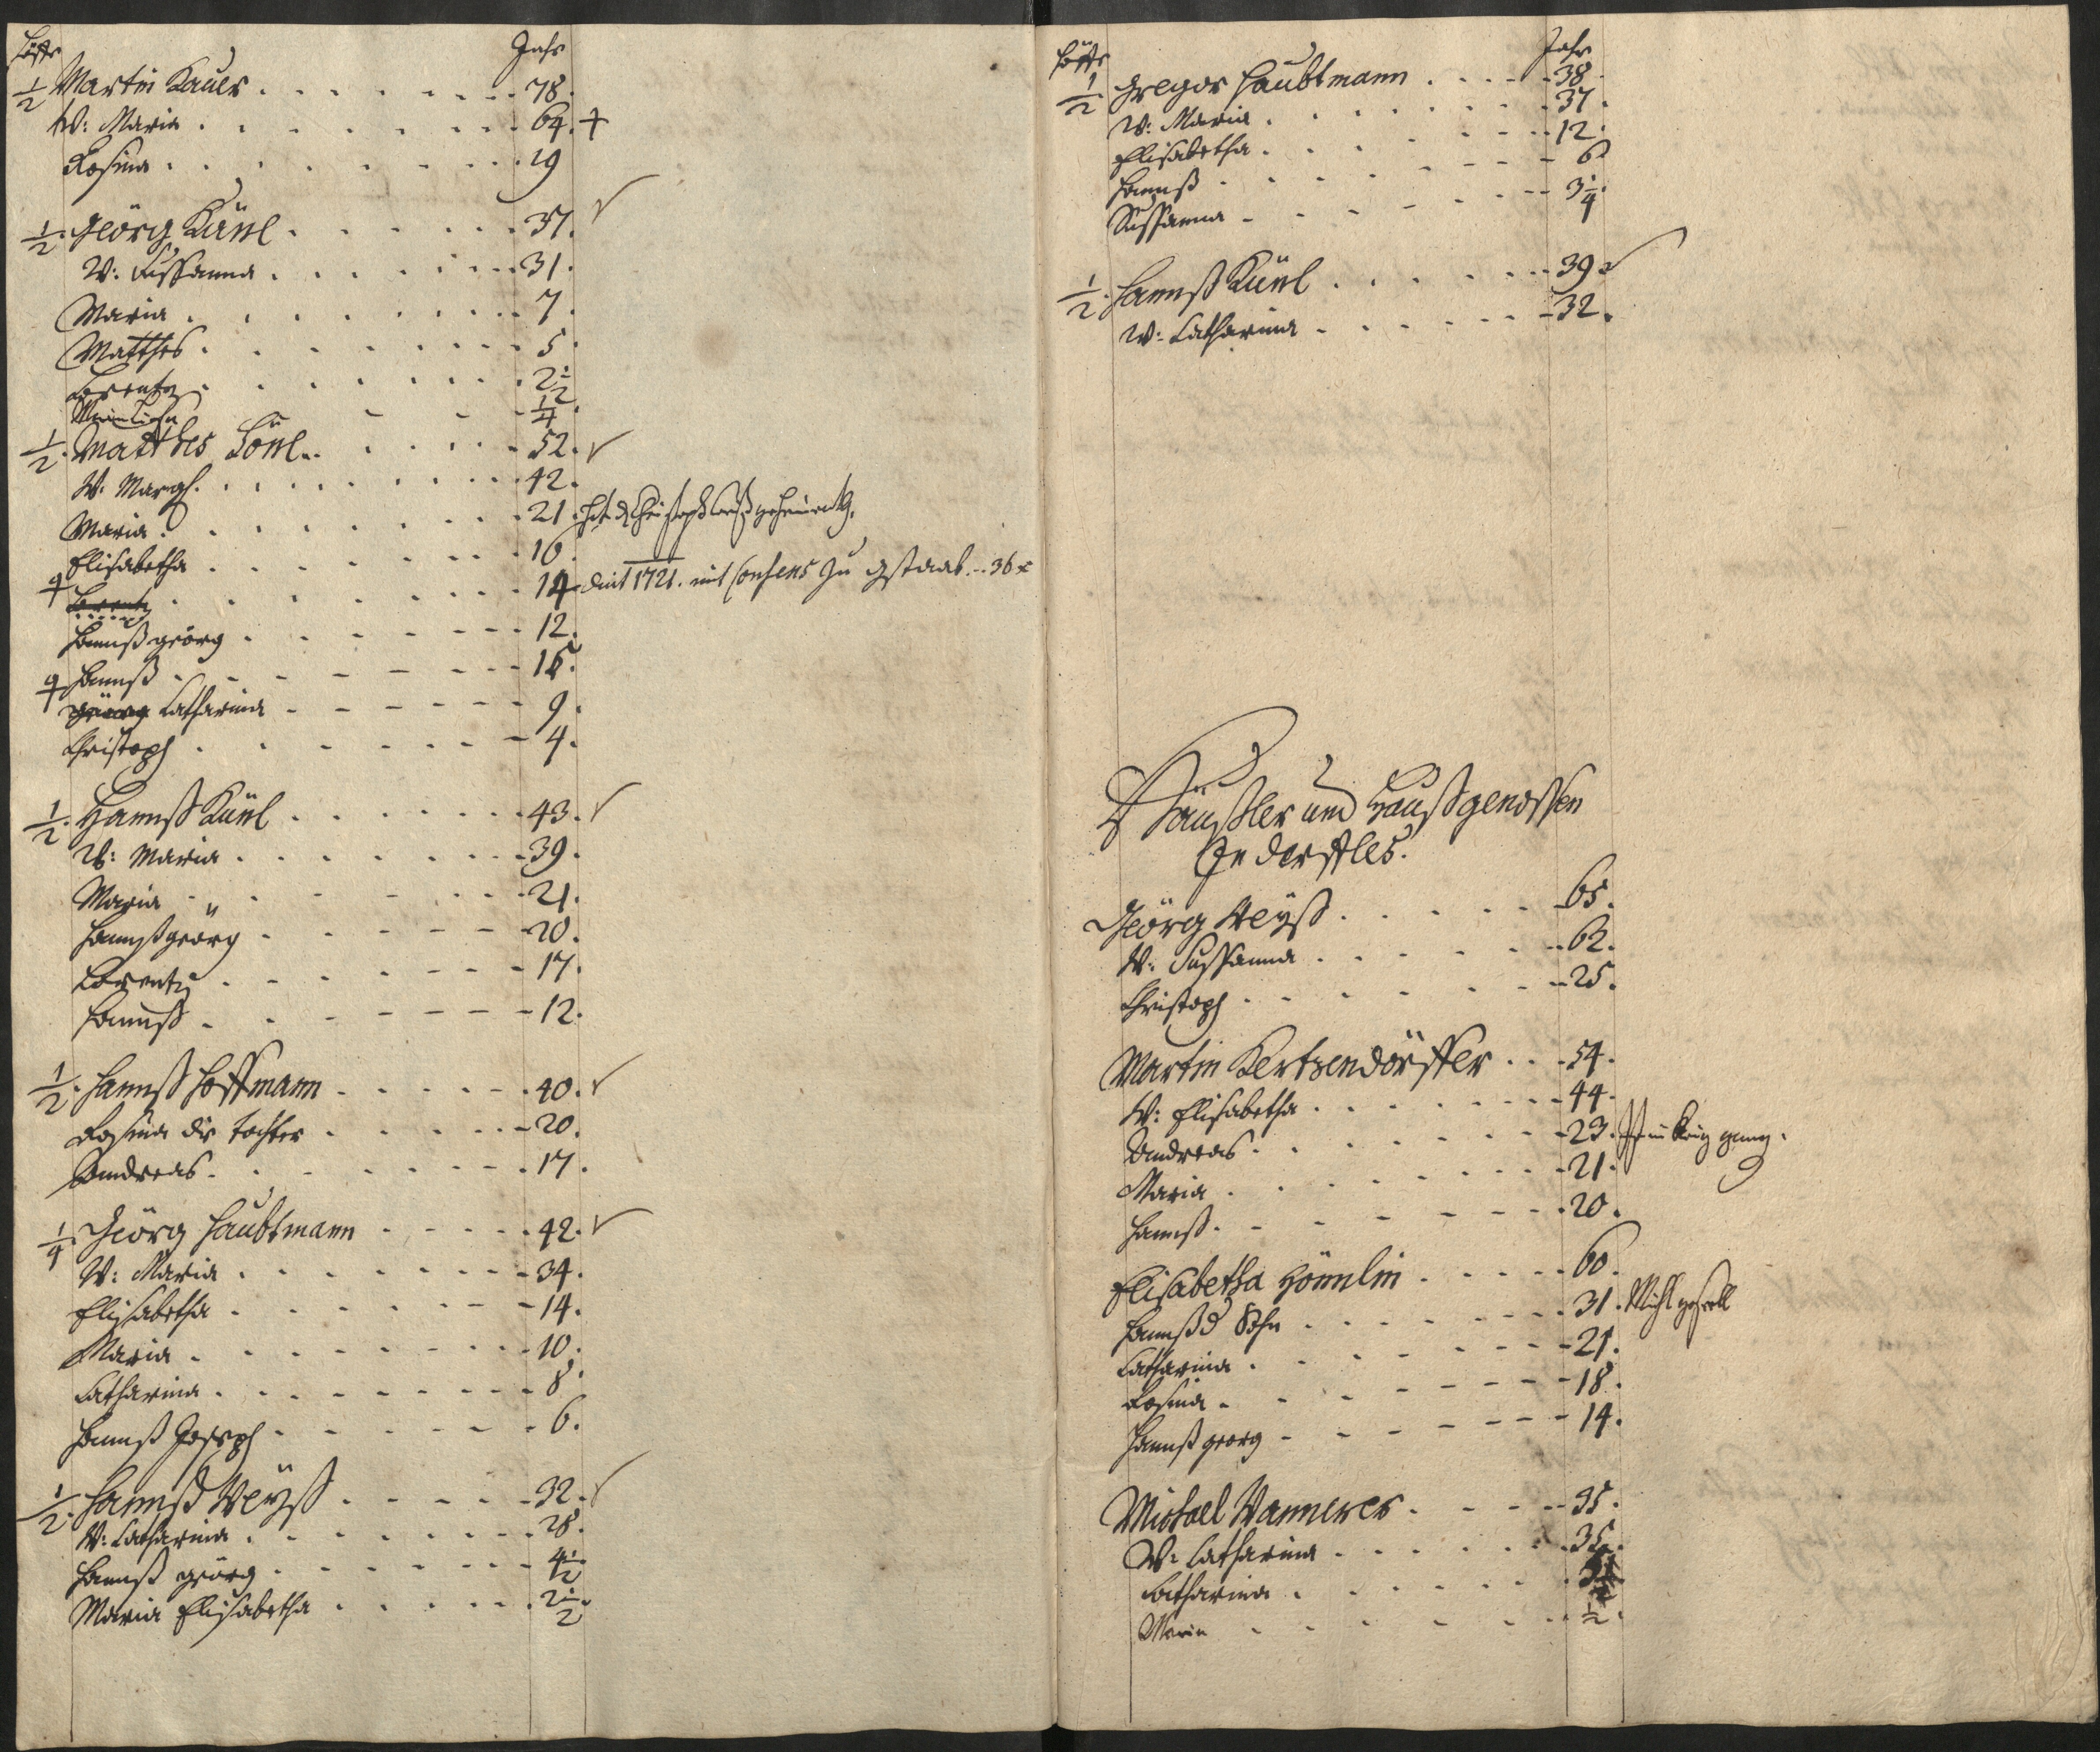 Höffe Jahr
1/2 Martin Kauer . . . . . . . 78.
W: Maria . . . . . . . 64. +
Rosina . . . . . . . 29
1/2. Geörg Küml . . . . . . 37.
W: Sussanna . . . . . . 31.
Maria . . . . . . . 7.
Matthes . . . . . . . 5.
Lorentz . . . . . . . 2 1/2
1/4.
1/2. Matthes . . . . 52.
W: Margh. . . . . . . 42.
Maria . . . . . . . 21.
Elisabetha . . . . . . 16.
Lorentz . . . . . . 14. dint 1721. mit Consens zu
Hannß geörg . . . . . . 12.
Hannß . . . . . .
Catharina - - - - - - 9.
Christoph . . . . . . 4.
1/2. Hannß Küml . . . . . . 43.
W: Maria . . . . . . . 39.
Maria . . . . . . 21.
Hannßgeorg . . . . . . 20.
Lorentz . . . . . . 17.
Hannß . . . . . . 12.
1/2. Hannß Hoffmann . . . . . . 40.
Rosina die Tochter . . . . . 20.
Andreas . . . . . . . 17.
1/4. Geörg Haubtmann . . . . . 42.
W: Maria . . . . . . . 34.
Elisabetha . . . . . . 14.
Maria . . . . . . . 10.
Catharina . . . . . . . 8.
Hannß Joseph . . . . . . 6.
1/2. Hannß Weyß . . . . . 32.
W: Catharina . . . . . . . 28.
Hannß geörg . . . . . . . 4 1/2
Maria Elisabetha . . . . . 2 1/2.
Höffe Jahr
1/2. Gregor Haubtmann . . . . 38.
W: Maria . . . . . . 37.
Elisabetha . . . . . . 12.
Hannß . . . . . . 6
Sussanna . . . . . . 3/4.
1/2. Hannß Küml . . . . . . 39
W: Catharina . . . . . . 32.
Häußler und Haußgenossen
Zu Dörffles.
Geörg Weyß . . . . . 65.
W: Sussanna . . . . . 62.
Christoph . . . . . . 25.
Martin Kertzendörffer . . . 54.
W: Elisabetha . . . . . . 44.
Andreas . . . . . . 23. Ist in Krieg gang.
Maria . . . . . . . 21.
Hannß . . . . . . . 20.
Elisabetha Hömlin . . . . . 60.
Hannß d Sohn . . . . . . 31.
Catharina . . . . . . 21.
Rosina . . . . . . 18.
Hannß georg . . . . . . 14.
Michael Wannerer . . . . 35.
W: Catharina . . . . . . 35.
Catharina . . . . . .
Maria . . . . . . 1/2.